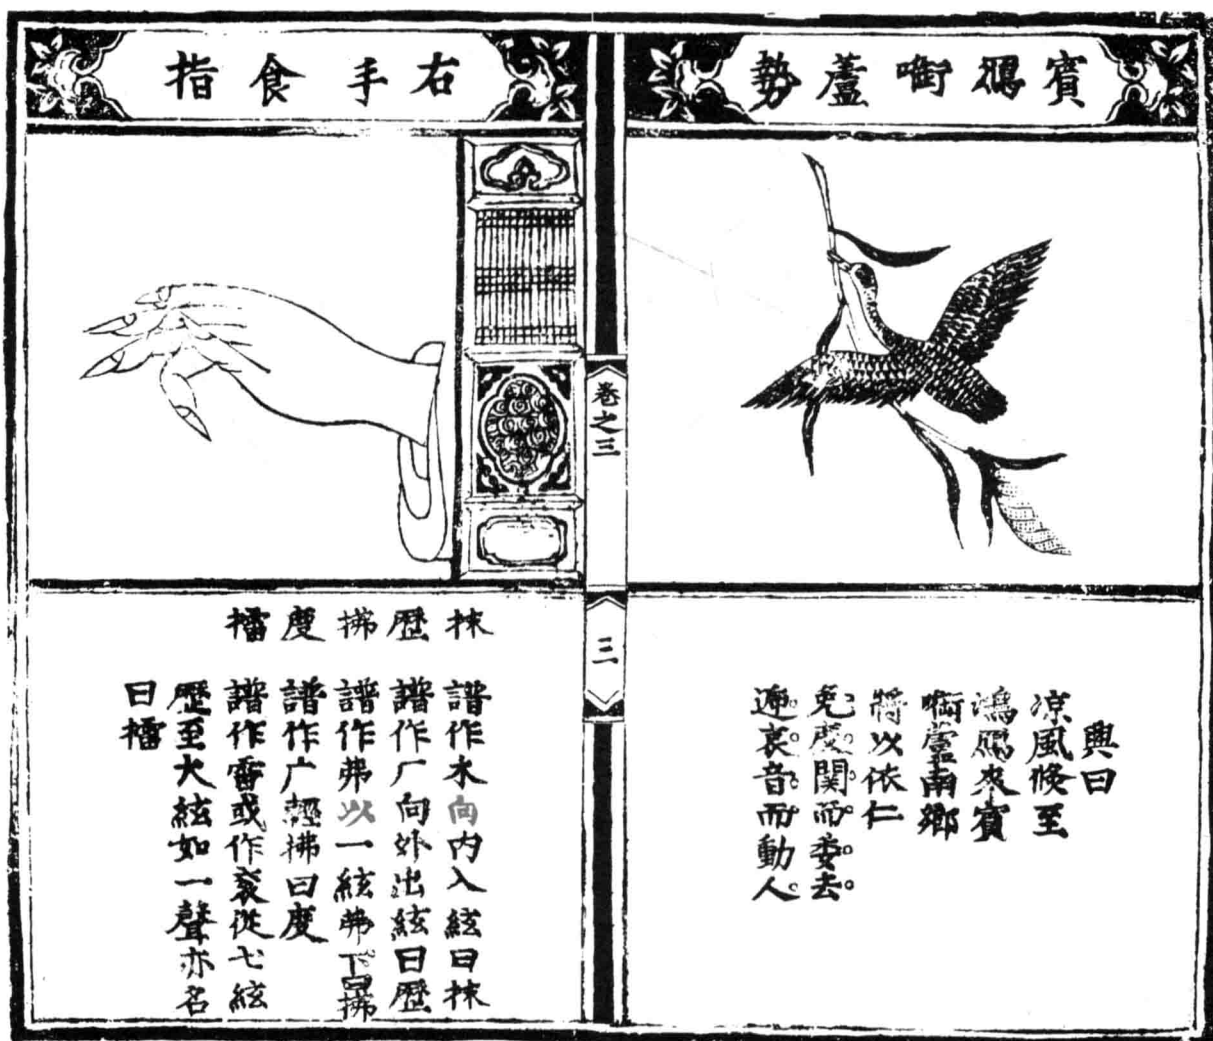 賓鴈啣蘆勢
興曰
凉風倏至
鴻鴈來賓
啣蘆南鄉
將以依仁
免度関而委去
遞哀音而動人
卷之三
三
右手食指
抹 譜作木向内入絃曰抹
歷 譜作厂向外出絃曰歷
拂 譜作弗以一絃弗下曰拂
度 譜作广輕拂曰度
擂 譜作雷或作衮從七絃
歷至大絃如一聲亦名
曰擂